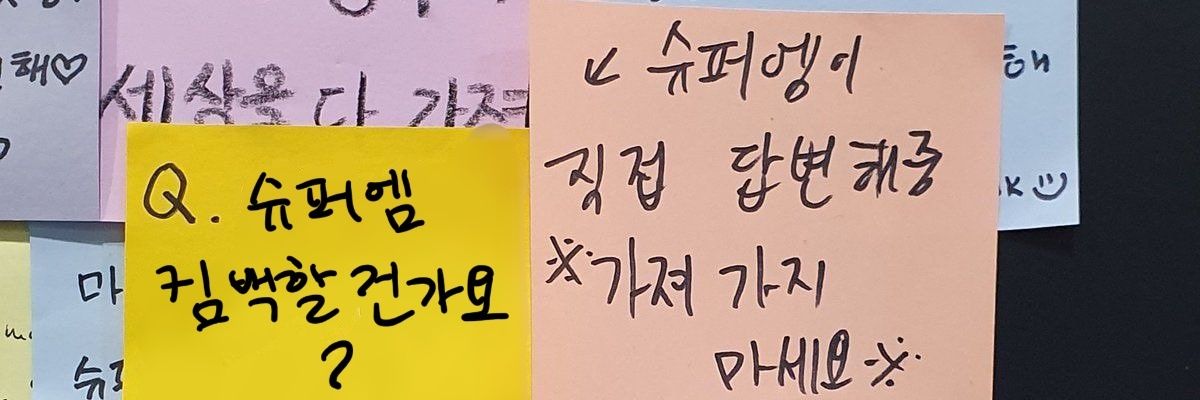 해♡
세상을 다 가져
Q. 슈퍼엠
컴백할 건가요
?
↙ 슈퍼엠이
직접 답변해줌
※가져 가지
마세요※
마